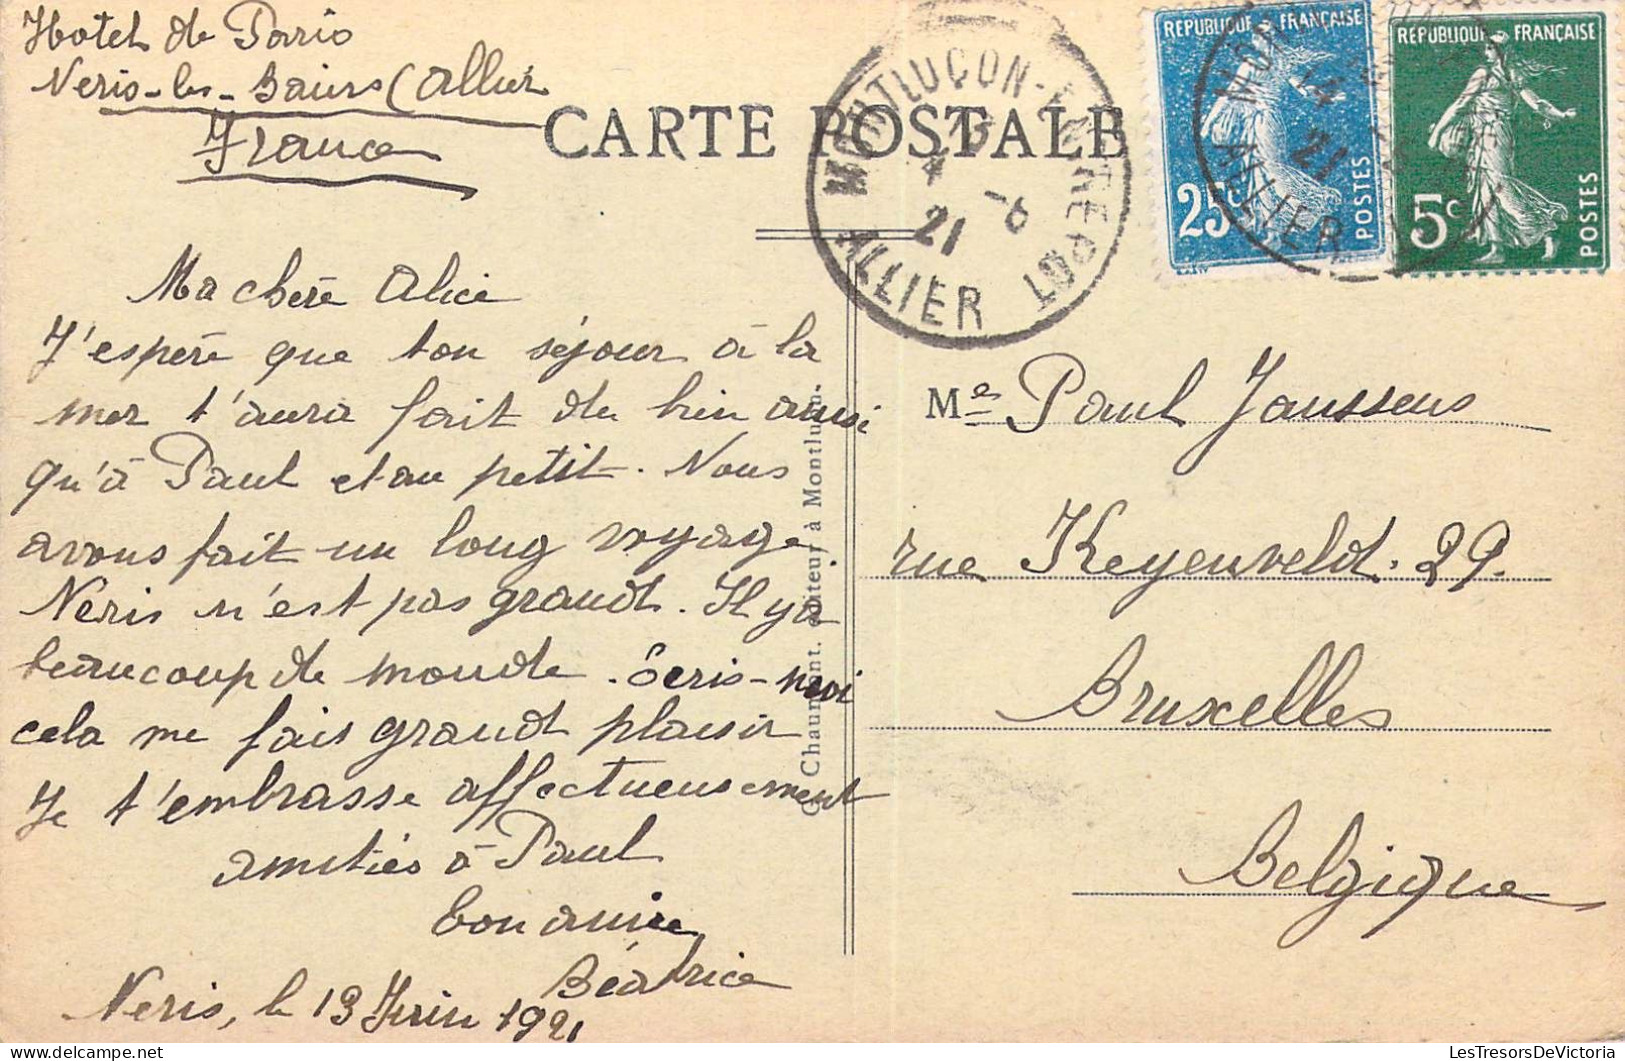 Hotel de Paris
Neris-les-Bains (Allier
France
CARTE POSTALE
MONTLUÇON-ENTREPOT
21
ALLIER
REPUBLIQUE FRANÇAISE
25c
POSTES
ALLIER
21
REPUBLIQUE FRANÇAISE
5c
POSTES
Ma chère Alice
J'espère que ton séjour à la
mer t'aura fait du bien aussi
qu'à Paul et au petit. Nous
avons fait un long voyage
Neris n'est pas grand. Il y a
beaucoup de monde. Ecris-moi
cela me fais grand plaisir
Je t'embrasse affectueusement
amitiés à Paul
Ton amie
Béatrice
Neris, le 13 Juin 1921
Chaumont, éditeur à Montluçon.
Me Paul Janssens
rue Keyenveld. 29.
Bruxelles
Belgique
LesTresorsDeVictoria